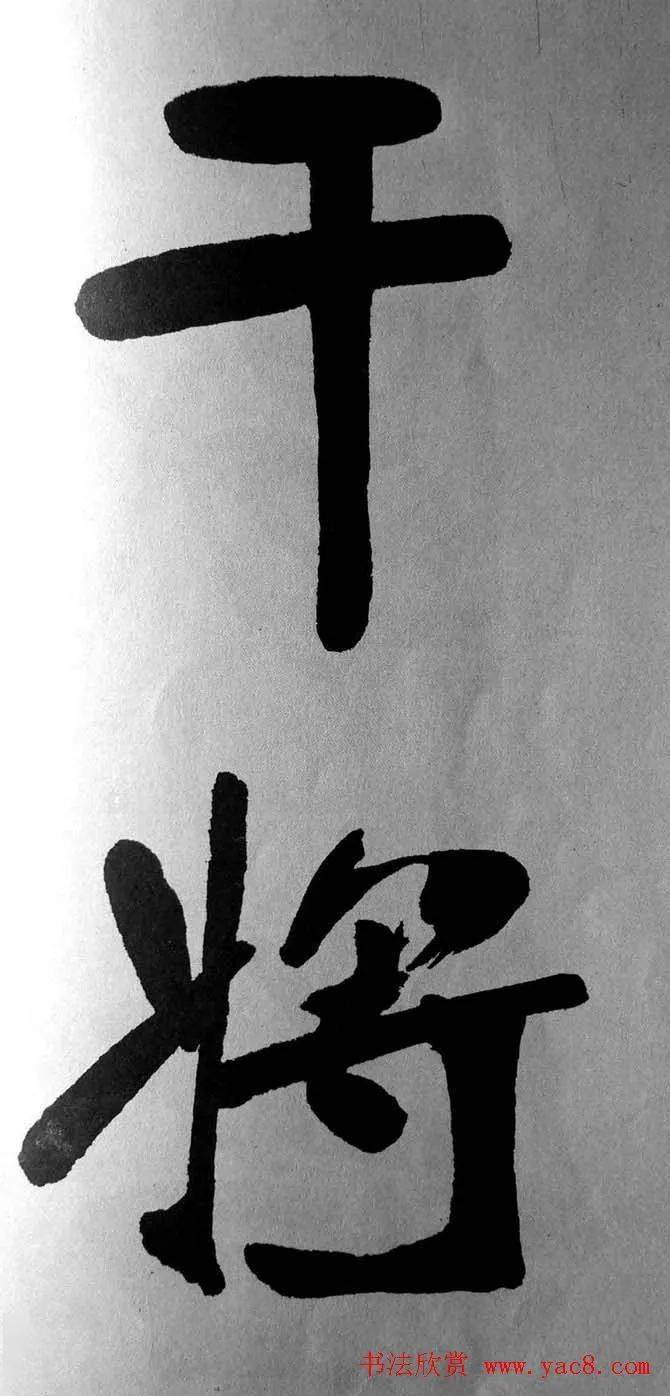 干
将
书法欣赏 www.yac8.com